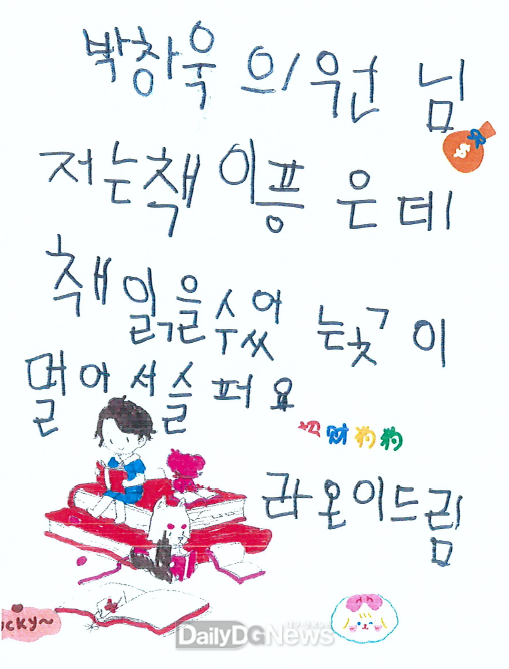 박창욱 의원 님
저는책 이픙 은데
책 읽을수었 는곳 이
멀어서슬퍼요
财狗狗
라온이드림
ucky~
DailyDGNews